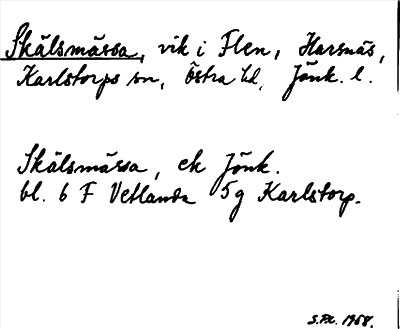 Skälsmässa, vik i Flen, Harsnäs,
Karlstorps sn, Östra hd, Jönk. l.
Skälsmässa, ek Jönk.
bl. 6 F Vetlanda 5g Karlstorp.
1968.